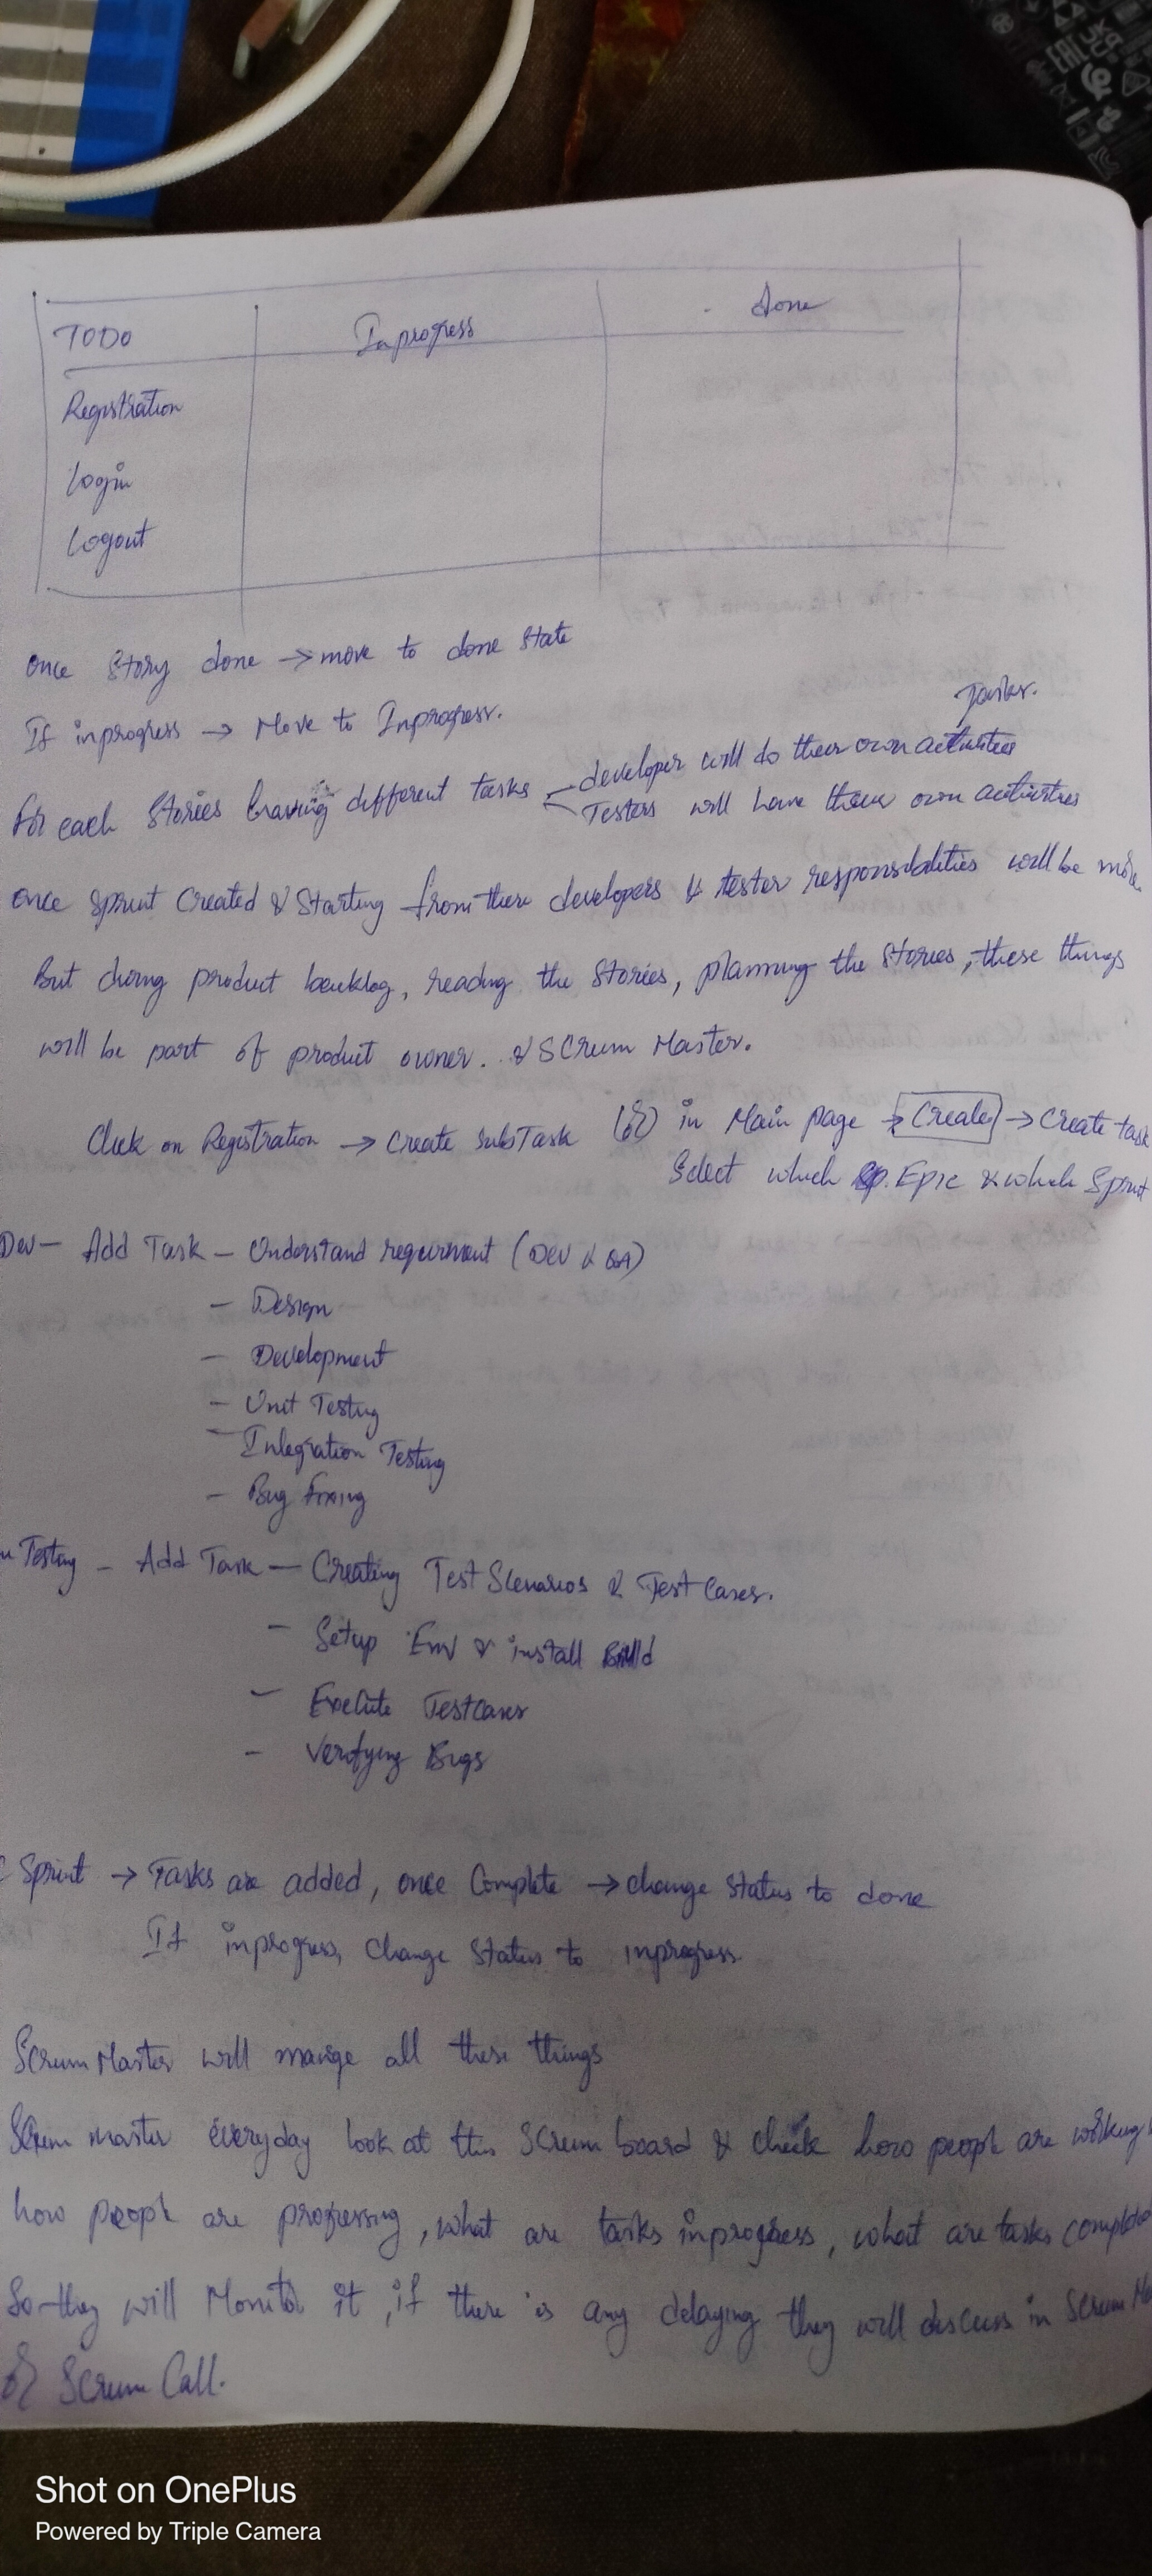 TODO Inprogress done
Registration
Login
Logout
once Story done → move to done state
If inprogress → Move to Inprogress.
Tasks.
for each Stories having different tasks developer will do their own activities
Testers will have their own activities
once sprint created & Starting from there developers & tester responsibilities will be more
But during product backlog, reading the Stories, planning the stories, these things
will be part of product owner. & SCrum Master.
Click on Registration → Create SubTask (or) in Main page → Create → Create task
Select which Epic & which Sprint
Dev - Add Task - Understand requirement (Dev & QA)
- Design
- Development
- Unit Testing
- Integration Testing
- Bug Fixing
Testing - Add Task - Creating Test Scenarios & Test Cases.
- Setup Env & install Build
- Execute Testcases
- Verifying Bugs
Sprint → Tasks are added, once Complete → change status to done
If inprogress, change status to inprogress
Scrum Master will mange all these things
Scrum master everyday look at this Scrum board & check how people are working
how people are progressing, what are tasks inprogress, what are tasks completed
So they will Monitor it, if there is any delaying they will discuss in Scrum
or Scrum Call.
Shot on OnePlus
Powered by Triple Camera